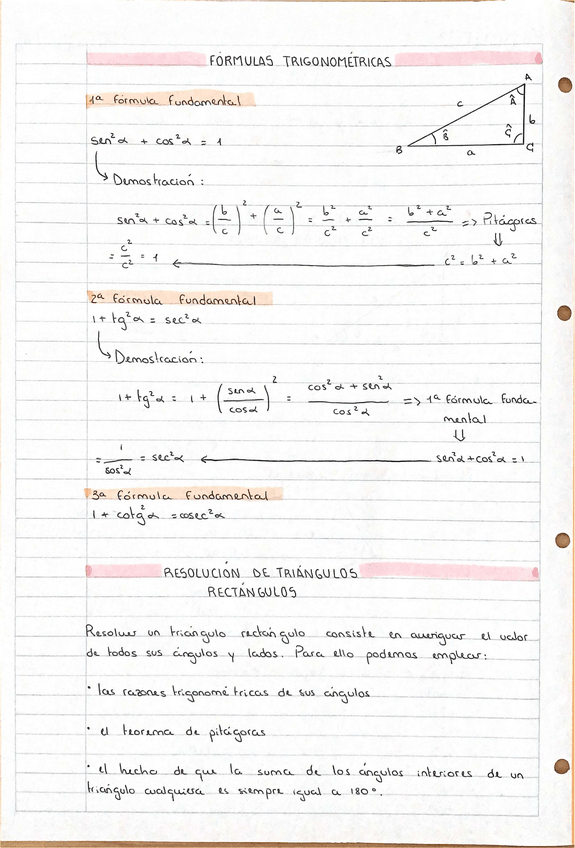 FÓRMULAS TRIGONOMÉTRICAS
1ª fórmula fundamental
A
Â
c
b
B̂
Ĉ
B
a
C
sen²α + cos²α = 1
Demostración:
sen²α + cos²α = (b/c)² + (a/c)² = b²/c² + a²/c² = (b² + a²)/c² => Pitágoras
= c²/c² = 1 ← c² = b² + a²
2ª fórmula fundamental
1 + tg²α = sec²α
Demostración:
1 + tg²α = 1 + (senα/cosα)² = (cos²α + sen²α)/cos²α => 1ª fórmula funda-
mental
= 1/cos²α = sec²α ← sen²α + cos²α = 1
3ª fórmula fundamental
1 + cotg²α = cosec²α
RESOLUCIÓN DE TRIÁNGULOS
RECTÁNGULOS
Resolver un triángulo rectángulo consiste en averiguar el valor
de todos sus ángulos y lados. Para ello podemos emplear:
· las razones trigonométricas de sus ángulos
· el teorema de pitágoras
· el hecho de que la suma de los ángulos interiores de un
triángulo cualquiera es siempre igual a 180º.